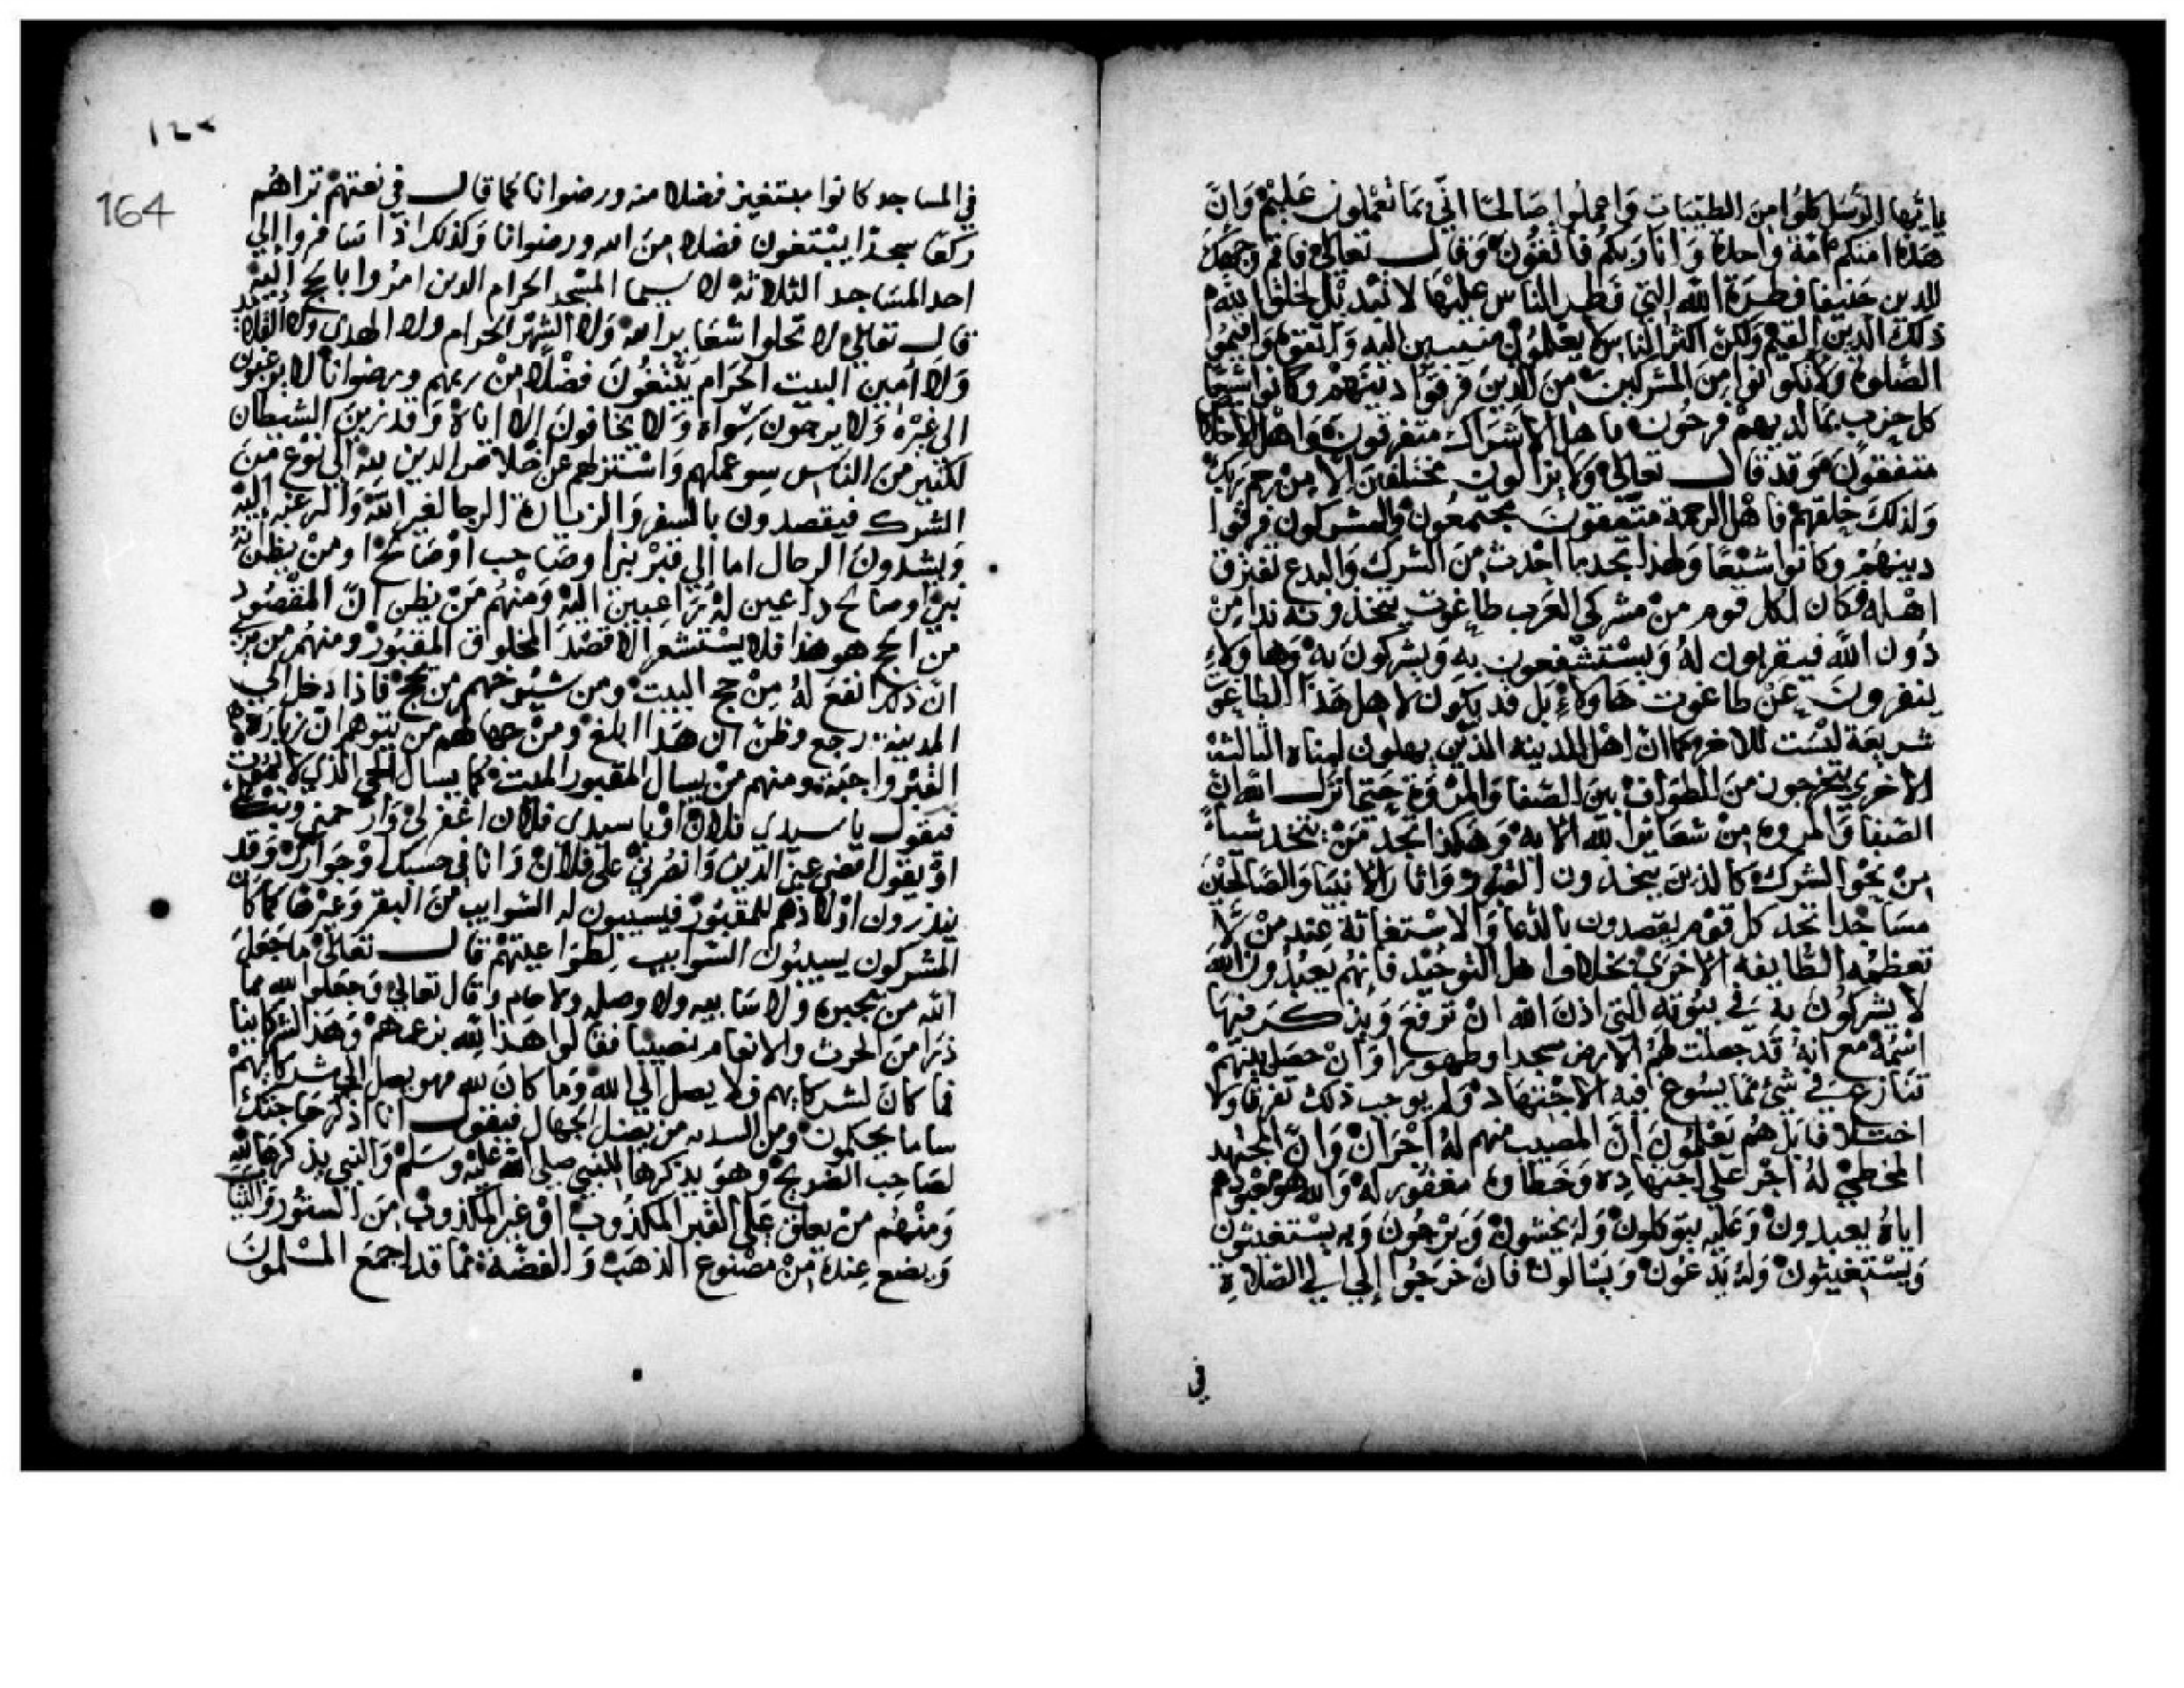 ياايها الرسل كلوا من الطيبات واعملوا صالحا اني بما تعملون عليم وان
هذه امتكم امة واحدة وانا ربكم فاتقون وقال تعالى فاقم وجهك
للدين حنيفا فطرة الله التي فطر الناس عليها لا تبديل لخلق الله
ذلك الدين القيم ولكن اكثر الناس لا يعلمون منيبين اليه واتقوه واقيموا
الصلوة ولا تكونوا من المشركين من الذين فرقوا دينهم وكانوا شيعا
كل حزب بما لديهم فرحون فاهل الاشراك متفرقون واهل الاخلاص
متفقون وقد قال تعالى ولا يزالون مختلفين الا من رحم ربك
ولذلك خلقهم فاهل الرحمة متفقون مجتمعون والمشركون فرقوا
دينهم وكانوا شيعا ولهذا تجد ما احدث من الشرك والبدع تفترق
اهله فكان لكل قوم من مشركي العرب طاغوت يتخذونه ندا من
دون الله فيقربون له ويستشفعون به ويشركون به وهاولاء
ينفرون عن طاغوت هاولاء بل قد يكون لاهل هذا الطاغوت
شريعة ليست للاخر كما ان اهل المدينه الذين يهلون لمناة الثالثة
الاخرى يتحرجون من الطواف بين الصفا والمروة حتى انزل الله ان
الصفا والمروه من شعائر الله الاية وهكذا تجد من يتخذ شيا
من نحو الشرك كالذين يتخذون القبور واثار الانبيا والصالحين
مساجدا تجد كل قوم يقصدون بالدعا والاستغاثة عند من لا
تعظمه الطايفة الاخرى بخلاف اهل التوحيد فانهم يعبدون الله
لا يشركون به في بيوته التي اذن الله ان ترفع ويذكر فيها
اسمه مع انه قد جعلت لهم الارض مسجدا وطهورا وان حصل بينهم
تنازع في شئ مما يسوغ فيه الاجتهاد ولم يوجب ذلك تفرقا ولا
اختلافا بل هم يعلمون ان المصيب منهم له اجران وان المجتهد
المخطئ له اجر على اجتهاده وخطاوه مغفور له والله هو معبودهم
اياه يعبدون وعليه يتوكلون وله يخشون ويرجون وبه يستعينون
ويستغيثون وله يدعون ويسالون فان خرجوا الى الصلاة
في
164
في المساجد كانوا مبتغين فضلا منه ورضوانا كما قال في نعتهم تراهم
ركعا سجدا يبتغون فضلا من الله ورضوانا وكذلك اذا سافروا الى
احد المساجد الثلاثة لا سيما المسجد الحرام الذين امروا بالحج اليه
قال تعالى لا تحلوا شعاير الله ولا الشهر الحرام ولا الهدى ولا القلايد
ولا امين البيت الحرام يبتغون فضلا من ربهم ورضوانا لا يرغبون
الى غيره ولا يرجون سواه ولا يخافون الا اياه وقد زين الشيطان
لكثير من الناس سو عملهم واستنزلهم عن اخلاص الدين لله الى نوع من
الشرك فيقصدون بالسفر والزيارة الرجا لغير الله والرغبة اليه
ويشدون الرحال اما الى قبر نبي او صاحب او صالح او من يظن انه
نبي او صالح داعين له راغبين اليه ومنهم من يظن ان المقصود
من الحج هو هذا فلا يستشعر الا قصد المخلوق المقبور ومنهم من يرى
ان ذلك انفع له من حج البيت ومن شيوخهم من يحج فاذا دخل الى
المدينة رجع وظن ان هذا ابلغ ومن جهالهم من يتوهم ان زيارة
القبر واجبة ومنهم من يسال المقبور الميت كما يسال الحي الذي لا يموت
فيقول يا سيدي فلان او يا سيدي فلان اغفر لي وارحمني وتب علي
او يقول اقض عني الدين وانصرني على فلان وانا في حسبك او جوارك وقد
ينذرون اولادهم للمقبور فيسيبون له السوايب من البقر وغيرها كما كان
المشركون يسيبون السوايب لطواغيتهم قال تعالى ما جعل
الله من بحيرة ولا سايبه ولا وصيله ولا حام وقال تعالى وجعلوا لله مما
ذرا من الحرث والانعام نصيبا فقالوا هذا لله بزعمهم وهذا لشركاينا
فما كان لشركايهم فلا يصل الى الله وما كان لله فهو يصل الى شركايهم
سا ما يحكمون ومن السدنه من يضل الجهال فيقول انا اذكر حاجتك
لصاحب الضريح وهو يذكرها للنبي صلى الله عليه وسلم والنبي يذكرها لله
ومنهم من يعلق على القبر المكذوب او غير المكذوب من الستور والثياب
ويضع عنده من مصنوع الذهب والفضة مما قد اجمع المسلمون